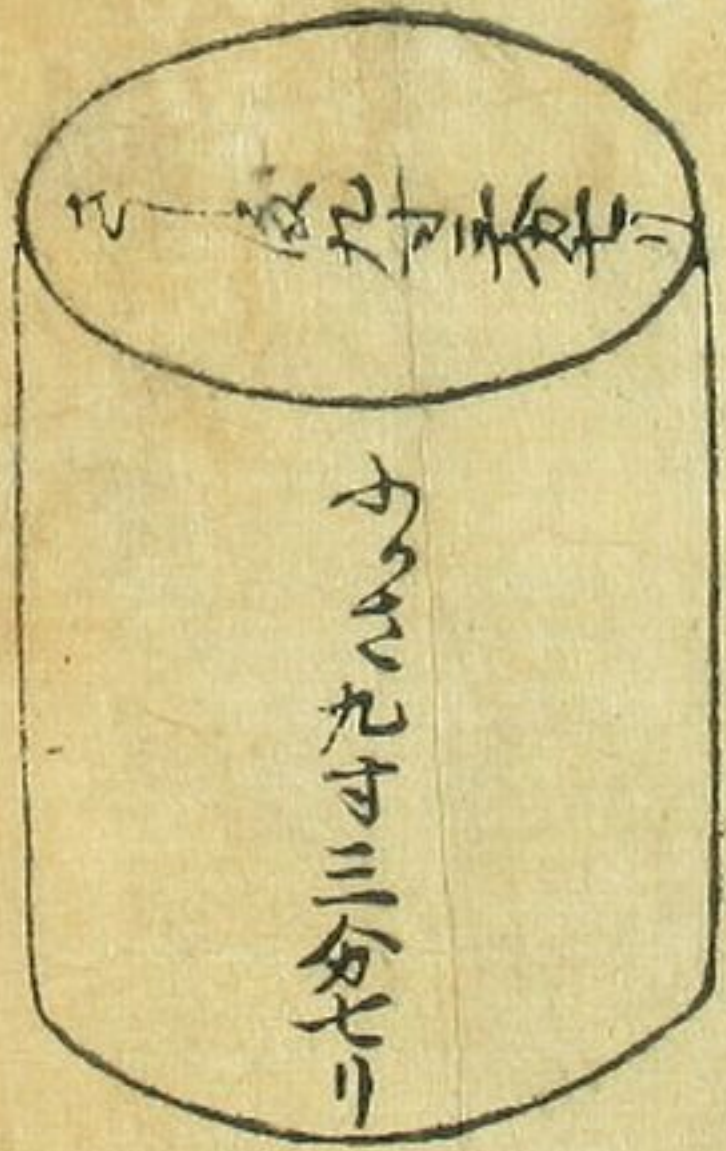 さし渡九寸三分七リ
ふかさ九寸三分七リ